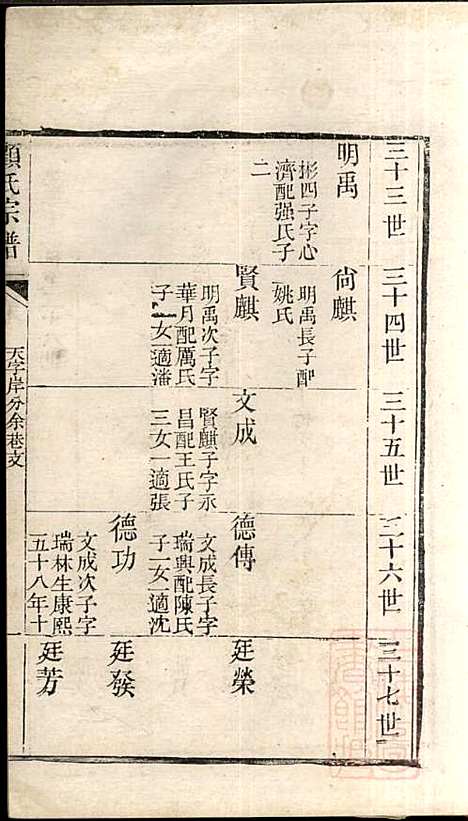 三十三世
三十四世
三十五世
三十六世
三十七世
明禹
彬四子字心
濟配强氏子
二
尙麒
明禹長子配
姚氏
賢麒
明禹次子字
華月配厲氏
子一女一適潘
文成
賢麒子字永
昌配王氏子
三女一適張
德傳
文成長子字
瑞興配陳氏
子二女一適沈
德功
文成次子字
瑞林生康熙
五十八年十
廷榮
廷發
廷芳
顧氏宗譜
天字岸分余巷支